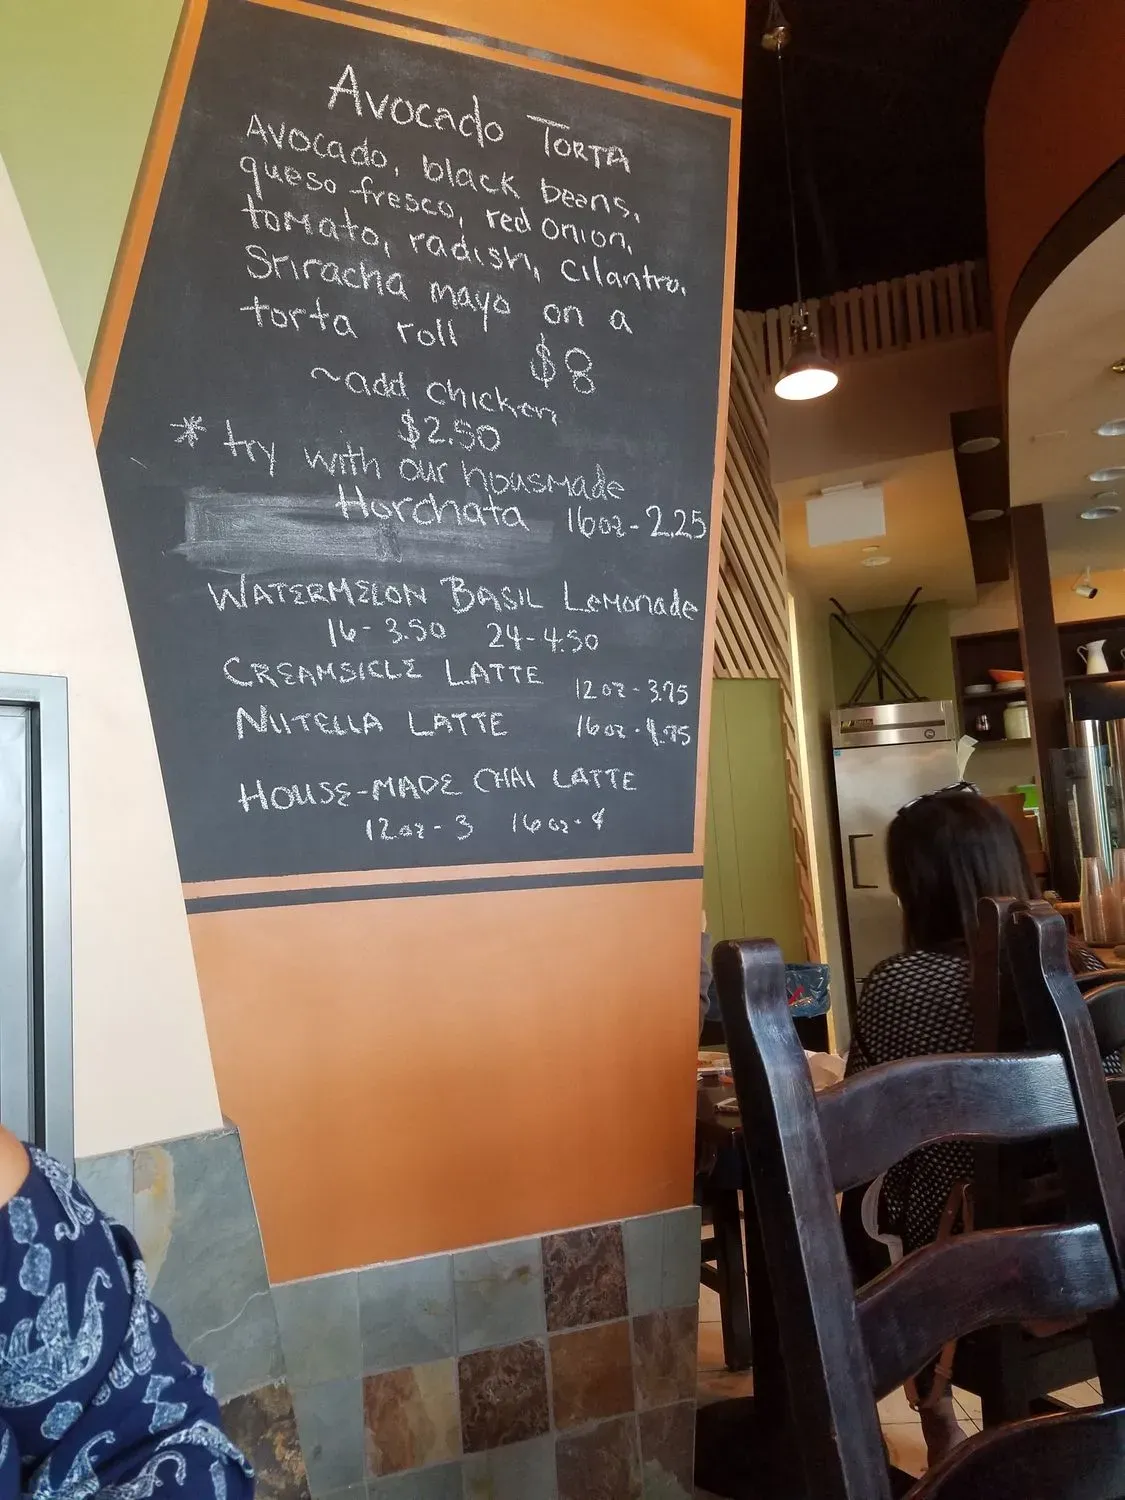 Avocado TORTA
Avocado, black beans,
queso fresco, red onion,
tomato, radish, cilantro,
Sriracha mayo on a
torta roll $8
~add chicken
$2.50
* try with our housmade
Horchata 16oz-2.25
WATERMELON BASIL Lemonade
16-3.50 24-4.50
CREAMSICLE LATTE 12oz-3.75
NUTELLA LATTE 16oz-4.75
HOUSE-MADE CHAI LATTE
12oz-3 16oz-4